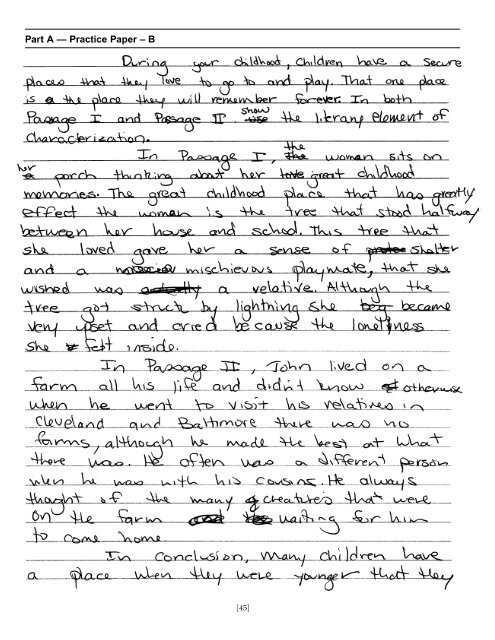 Part A — Practice Paper – B
During your childhood, children have a secure
places that they love to go to and play. That one place
is the place they will remember forever. In both
Passage I and Passage II show the literary element of
characterization.
In Passage I, the woman sits on
her porch thinking about her great childhood
memories. The great childhood place that has greatly
effect the woman is the tree that stood halfway
between her house and school. This tree that
she loved gave her a sense of shelter
and a mischievous playmate, that she
wished was a relative. Although the
tree got struck by lightning she became
very upset and cried because the loneliness
she felt inside.
In Passage II, John lived on a
farm all his life and didn't know otherwise
when he went to visit his relatives in
Cleveland and Baltimore there was no
farms, although he made the best at what
there was. He often was a different person
when he was with his cousins. He always
thought of the many creatures that were
on the farm waiting for him
to come home.
In conclusion, many children have
a place when they were younger that they
[45]